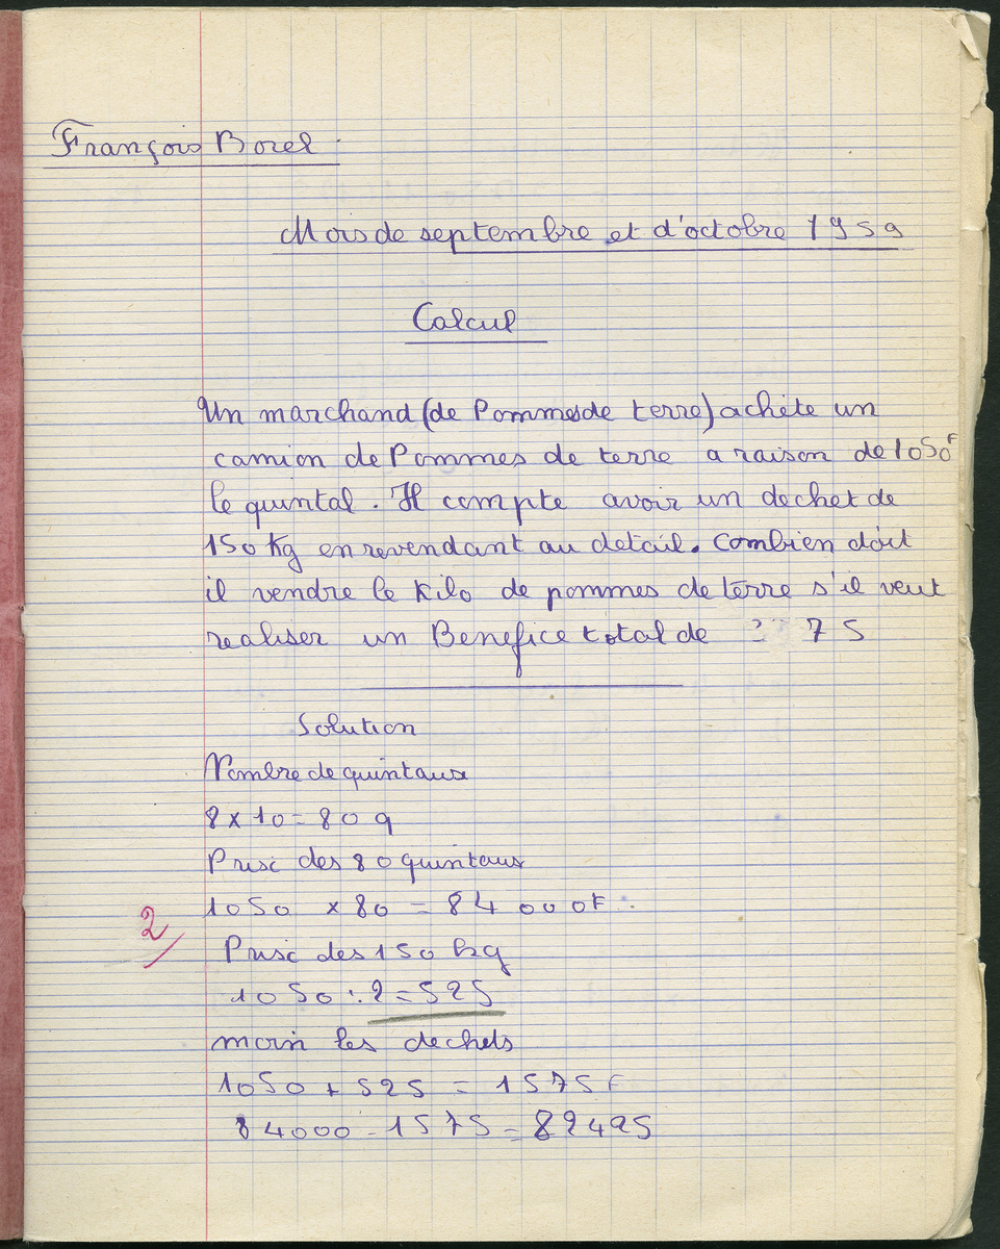 François Borel
Mois de septembre et d'octobre 1959
Calcul
Un marchand (de Pommes de terre) achète un
camion de Pommes de terre a raison de 1050F
le quintal. Il compte avoir un dechet de
150 Kg en revendant au detail. Combien doit
il vendre le Kilo de pommes de terre s'il veut
realiser un Benefice total de 75
Solution
Nombre de quintaux
8 x 10 = 80 q
Prix des 80 quintaux
1050 x 80 = 84 000F
2
Prix des 150 kg
1050 : 2 = 525
moin les dechets
1050 + 525 = 1575 F
84000 - 1575 = 82425